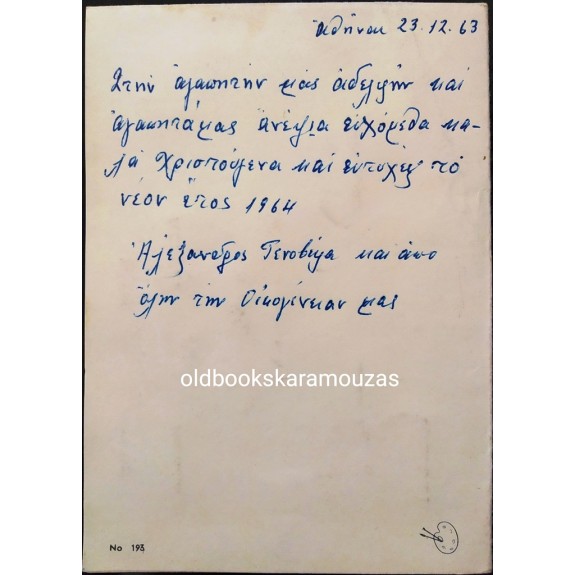 Ἀθῆναι 23.12.63
Στήν ἀγαπητήν μας ἀδελφήν καί
ἀγαπητά μας ἀνέψια εὐχόμεθα κα-
λά Χριστούγενα καί εὐτυχές τό
νέον ἔτος 1964
Ἀλέξανδρος Γενοβέφα καί ἀπο
ὅλην τήν Οἰκογένειαν μας
oldbookskaramouzas
No 193